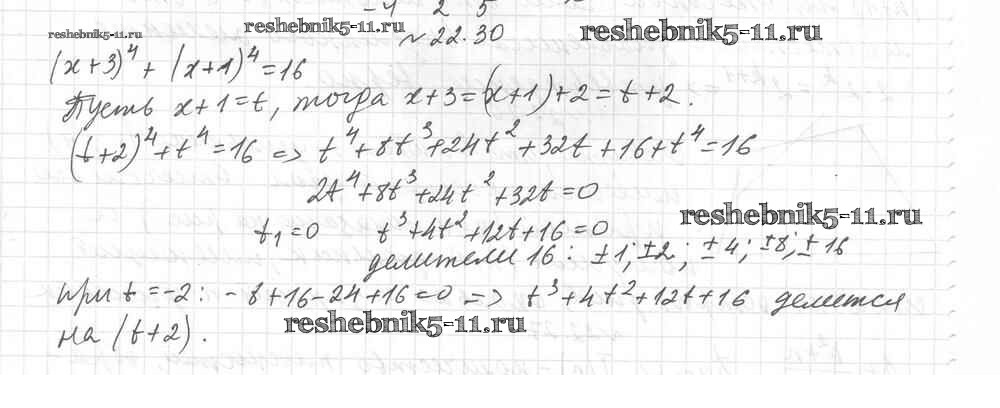 -4 2 5
reshebnik5-11.ru reshebnik5-11.ru № 22.30 reshebnik5-11.ru
(x+3)^4 + (x+1)^4 = 16
Пусть x+1=t, тогда x+3=(x+1)+2=t+2.
(t+2)^4+t^4=16 => t^4+8t^3+24t^2+32t+16+t^4=16
2t^4+8t^3+24t^2+32t=0
reshebnik5-11.ru
t₁=0 t^3+4t^2+12t+16=0
делители 16: ±1; ±2; ±4; ±8; ±16
при t=-2: -8+16-24+16=0 => t^3+4t^2+12t+16 делится
на (t+2).
reshebnik5-11.ru